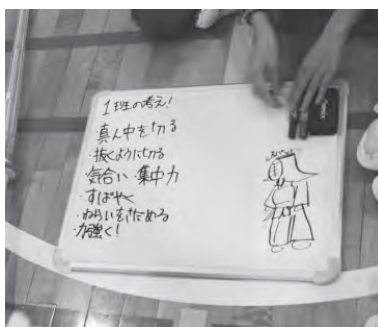 1班の考え!
・真ん中を切る
・抜くように切る
・気合い・集中力
・すばやく
・ねらいをさだめる
・力強く!